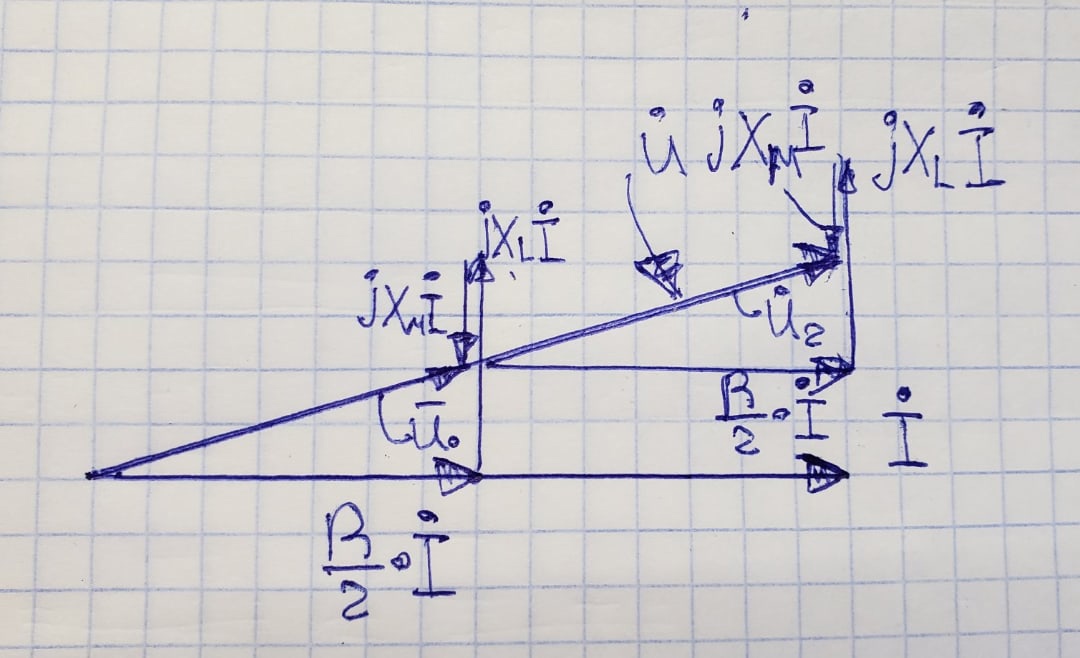 U̇ jX_M İ jX_L İ
jX_L İ
jX_M İ
U̇₂
R/2 · İ
İ
Ū₀
R/2 · İ